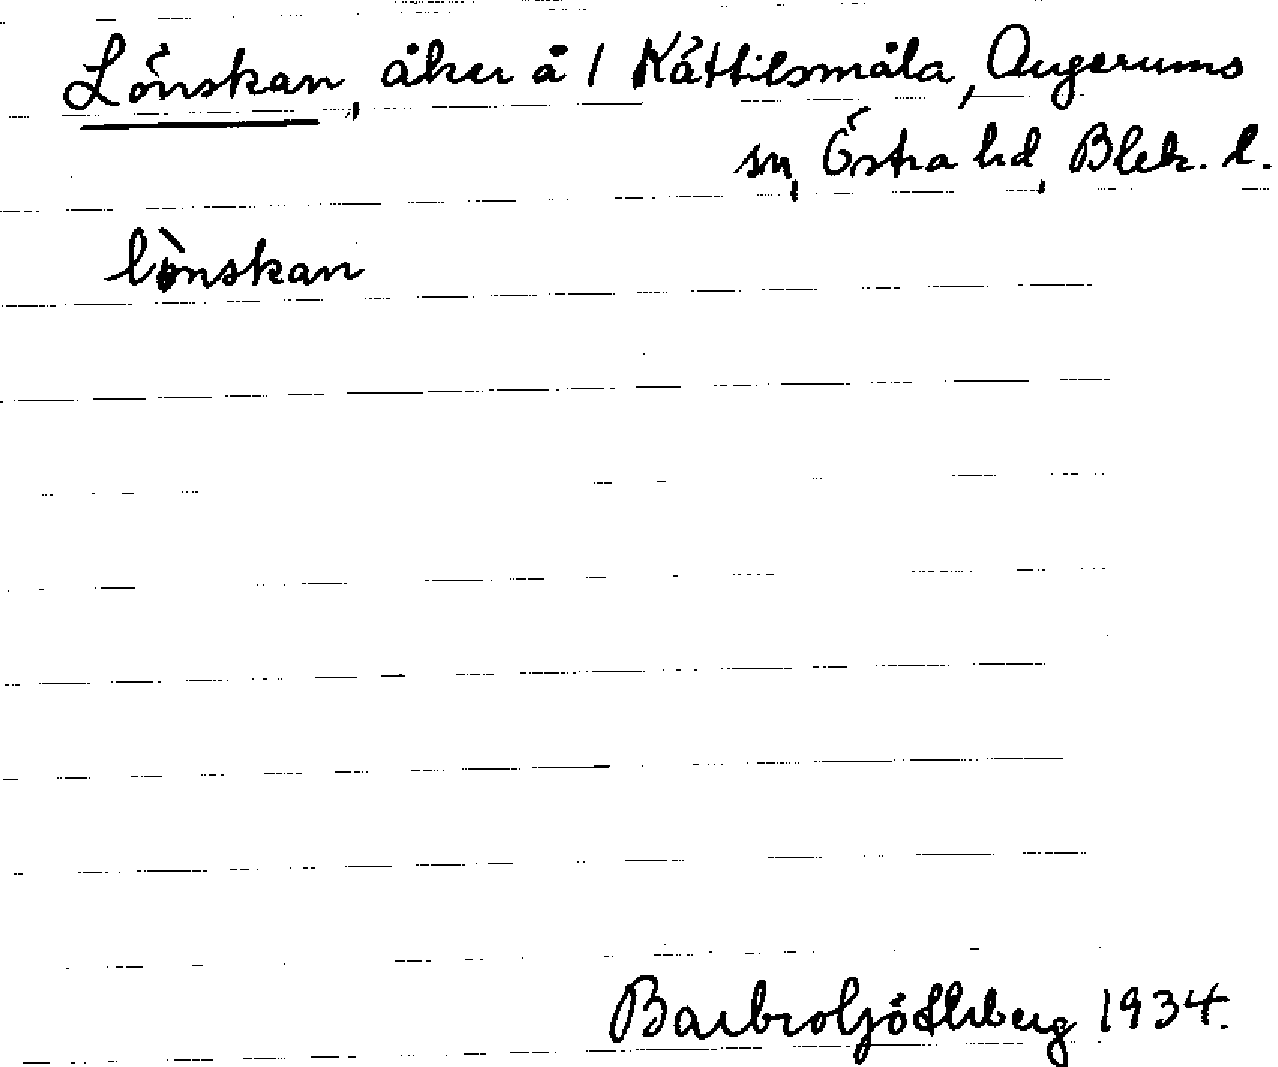 Lönskan, åker å 1 Kättilsmåla, Augerums
sn, Östra hd, Blek. l.
lònskan
Barbro Göthberg 1934.